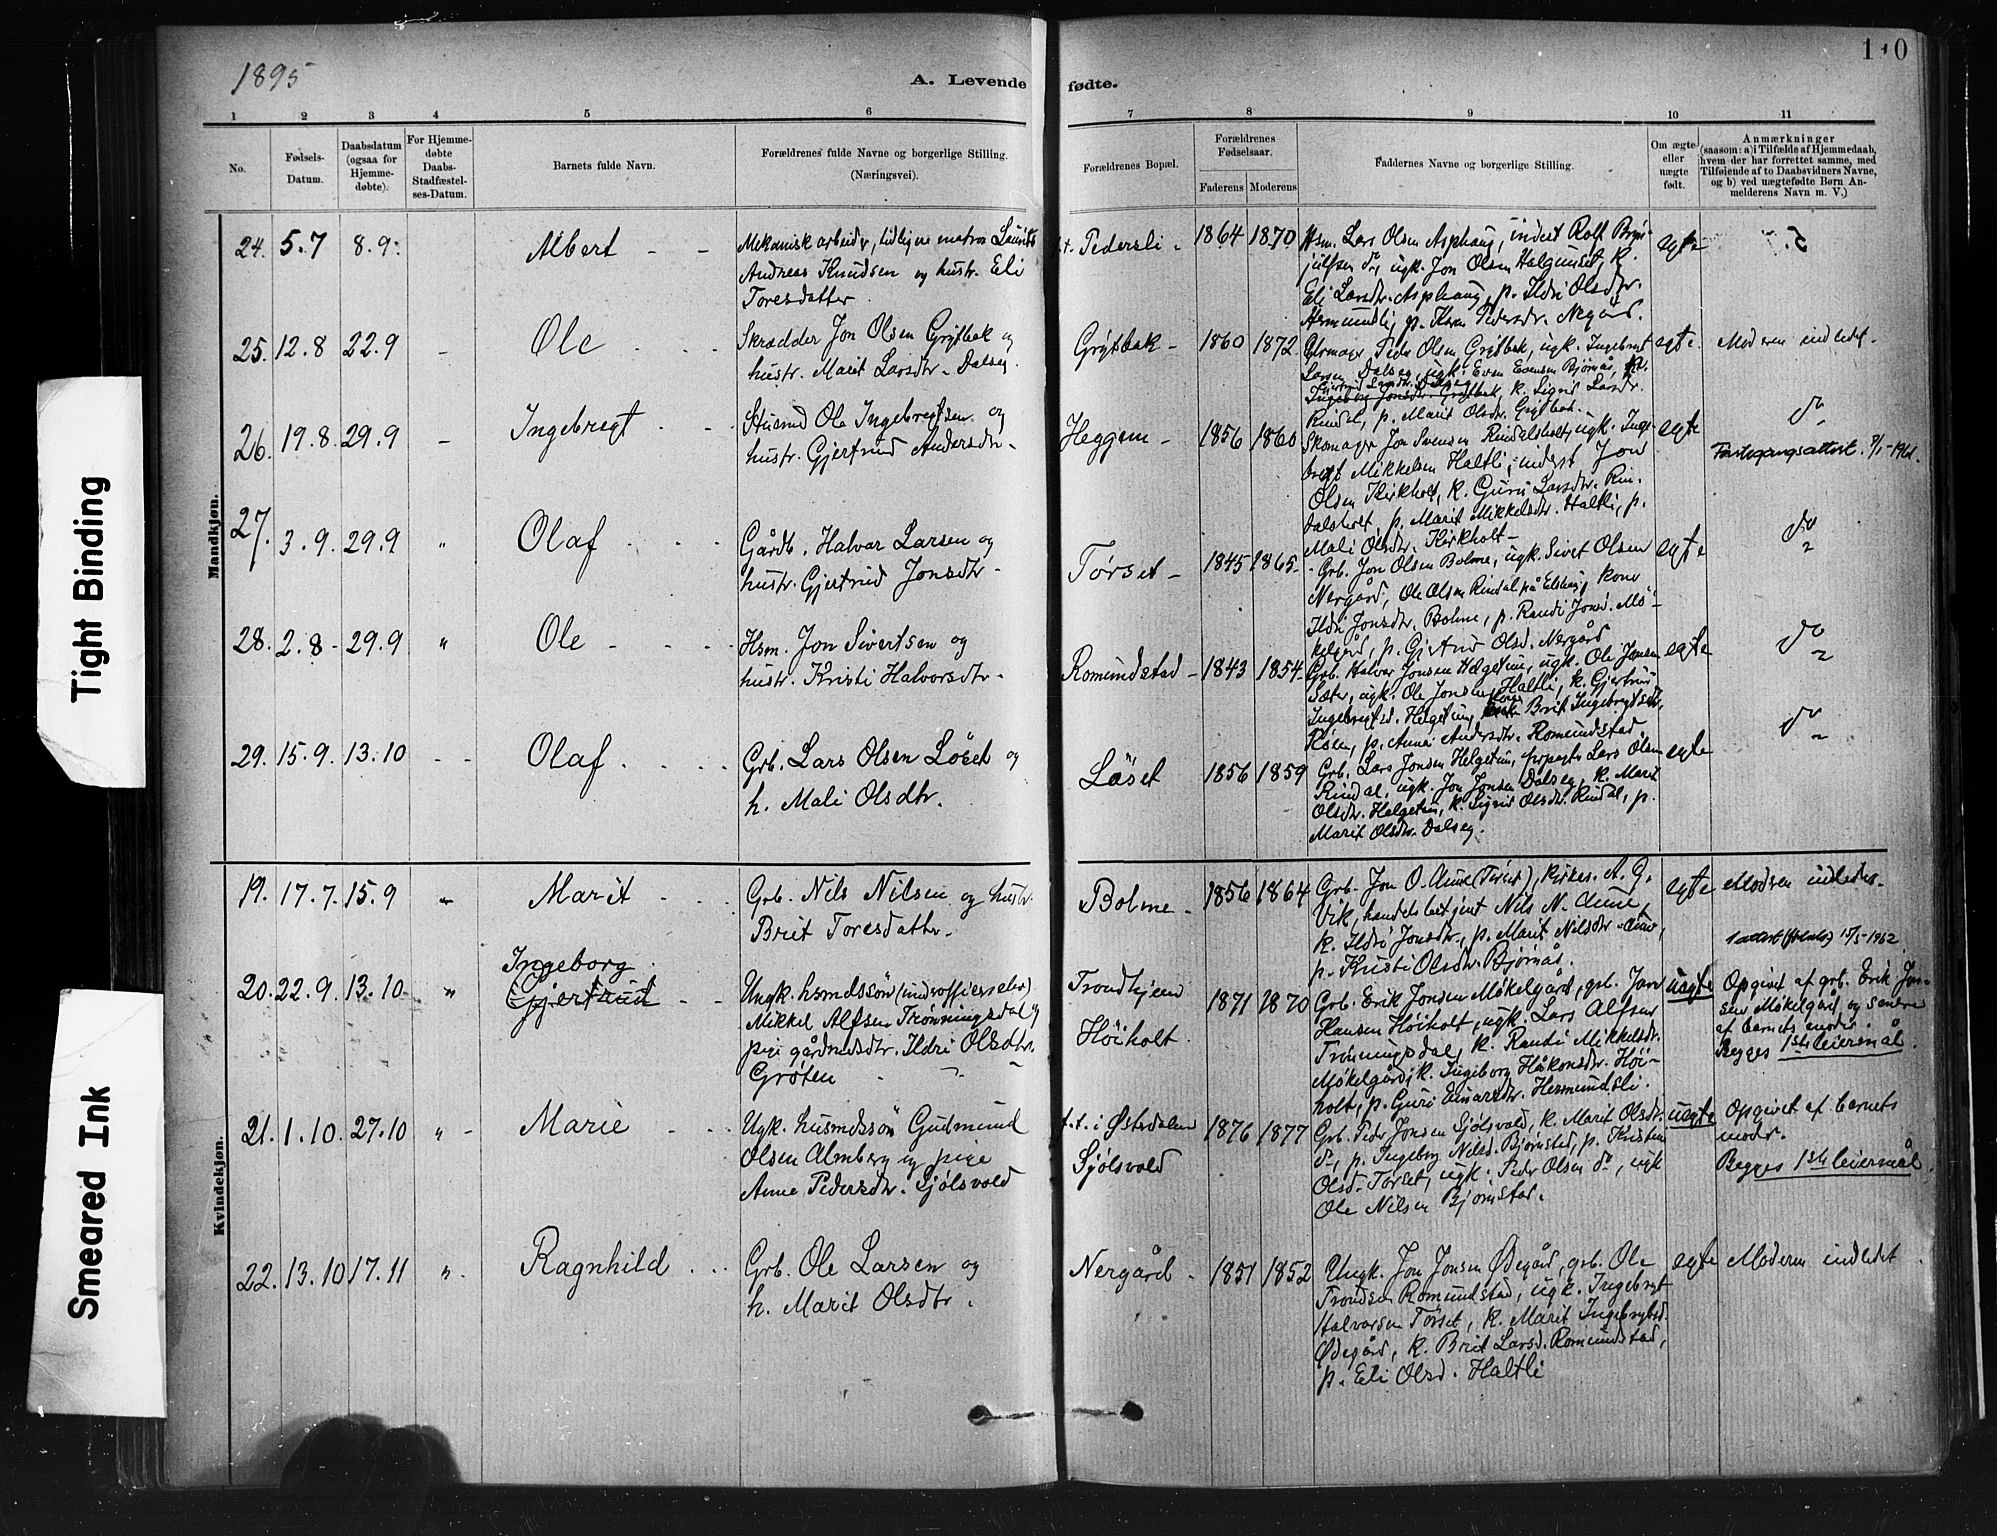 1895
A. Levende fødte.
110
1 2 3 4 5 6 7 8 9 10 11
No.
Fødsels-
Datum.
Daabsdatum
(ogsaa for
Hjemme-
døbte).
For Hjemme-
døbte
Daabs-
Stadfæstel-
ses-Datum.
Barnets fulde Navn.
Forældrenes fulde Navne og borgerlige Stilling.
(Næringsvei).
Forældrenes Bopæl.
Forældrenes
Fødselsaar.
Faderens Moderens
Faddernes Navne og borgerlige Stilling.
Om ægte
eller
uægte
født.
Anmærkninger
(saasom: a) i Tilfælde af Hjemmedaab,
hvem der har forrettet samme, med
Tilføiende af to Daabsvidners Navne,
og b) ved uægtefødte Børn An-
melderens Navn m. V.)
Mandkjøn.
24. 5.7 8.9. Albert
Mekanisk arbeidr, tidligere matros Laurits
Andreas Knudsen og hustr. Eli
Toresdatter.
f.t. Pedersli 1864 1870
Hsm. Lars Olsen Asphaug, inderst Rolf Bryn-
julfsen do, ugk. Jon Olsen Halgunset, k.
Eli Larsdtr. Asphaug, p. Ildri Olsdtr.
Hermundsli, p. Karen Pedersdtr. Negård.
egte
25. 12.8 22.9 Ole
Skrædder Jon Olsen Grytbak og
hustr. Marit Larsdtr. Dalseg.
Grytbak 1860 1872
Peder Olsen Grytbak, ugk. Ingebrygt
Larsen Dalseg, ugk. Even Evensen Bjørnås, k.
Ingeborg Jonsdtr. Grytbak, k. Sigrid Larsdr.
Rindal, p. Marit Olsdtr. Grytbak.
egte. Moderen indledet.
26. 19.8 29.9 Ingebregt
Husmd Ole Ingebregtsen og
hustr. Gjertrud Andersdtr.
Heggem 1856 1860
Skomager Jon Svensen Rindalsholt, ugk. Inge-
bregt Mikkelsen Haltli, inderst Jon
Olsen Kirkholt, k. Guru Larsdtr. Rin-
dalsholt, p. Marit Mikkelsdtr. Haltli, p.
Mali Olsdtr. Kirkholt
egte do
27. 3.9. 29.9 Olaf
Gårdb. Halvar Larsen og
hustr. Gjertrud Jonsdtr.
Tørset 1845 1865
Grb. Jon Olsen Bolme, ugk. Sivert Olsen
Nergård, Ole Olsen Rindal på Elshaug, kone
Ildri Jonsdtr. Bolme, p. Randi Jonsd. Mø-
kelgård, p. Gjertrud Olsd. Nergård
egte do
28. 2.8 29.9 Ole
Hsm. Jon Sivertsen og
hustr. Kristi Halvorsdtr.
Romundstad 1843 1854
Grb. Halvar Jonsen Helgetun, ugk. Ole Jonsen
Sæter, ugk. Ole Jonsen Haltli, k. Gjertrud
Ingebregtsd. Helgetun, kone Brit Ingebrygtsdtr.
Røen, p. Anne Andersdtr. Romundstad.
egte do
29. 15.9. 13.10 Olaf
Grb. Lars Olsen Løset og
h. Mali Olsdtr.
Løset 1856 1859
Grb. Lars Jonsen Helgetun, forpagter Lars Olsen
Rindal, ugk. Jon Jonsen Dalseg, k. Marit
Olsdtr. Helgetun, k. Sigrid Olsdtr. Rindal, p.
Marit Olsdtr. Dalseg.
egte do
Kvindekjøn.
19. 17.7. 15.9 Marit
Grb. Nils Nilsen og hustr.
Brit Toresdatter.
Bolme 1856 1864
Grb. Jon O. Aune (Tørset), kirkes. A. G.
Vik, handelsbetjent Nils N. Aune,
k. Ildri Jonsdtr., p. Marit Nilsdtr. Aune,
p. Kristi Olsdtr. Bjørnås.
egte Moderen indledet.
20. 22.9. 13.10 Ingeborg
Gjertrud
Ungk. husmdssøn (underoffierselev)
Mikkel Alfsen Trønningsdal og
pige gårdmdsdtr. Ildri Olsdtr.
Grøten
Trondhjem
Høiholt. 1871 1870
Grb. Erik Jonsen Møkelgård, grb. Jon
Hansen Høiholt, ugk. Lars Alfsen
Trønningsdal, k. Randi Mikkelsdr.
Møkelgård, k. Ingeborg Håkonsdtr. Høi-
holt, p. Guri Einarsdtr. Hermundsli.
uegte
Opgivet af grb. Erik Jon-
sen Møkelgård og senere
af barnets moder.
Begges 1ste leiermål.
21. 1.10. 27.10 Marie
Ugk. husmdssøn Gudmund
Olsen Almberg og pige
Anne Pedersdtr. Sjølsvold
f.t. i Østerdalen
Sjølsvold 1876 1877
Grb. Peder Jonsen Sjølsvold, k. Marit Olsdtr.
do, p. Ingeborg Nilsd. Bjørnstad, p. Kristine
Olsd. Tørset, ugk. Peder Olsen do, ugk
Ole Nilsen Bjørnstad.
uegte
Opgivet af barnets
moder.
Begges 1ste leiermål.
22. 13.10 17.11 Ragnhild
Grb. Ole Larsen og
h. Marit Olsdtr.
Nergård 1851 1852
Ungk. Jon Jonsen Ødegård, grb. Ole
Trondsen Romundstad, ugk. Ingebrygt
Halvorsen Tørset, k. Marit Ingebrygtsd.
Ødegård, k. Brit Larsd. Romundstad,
p. Eli Olsd. Haltli
egte Moderen indledet
Tight Binding
Smeared Ink